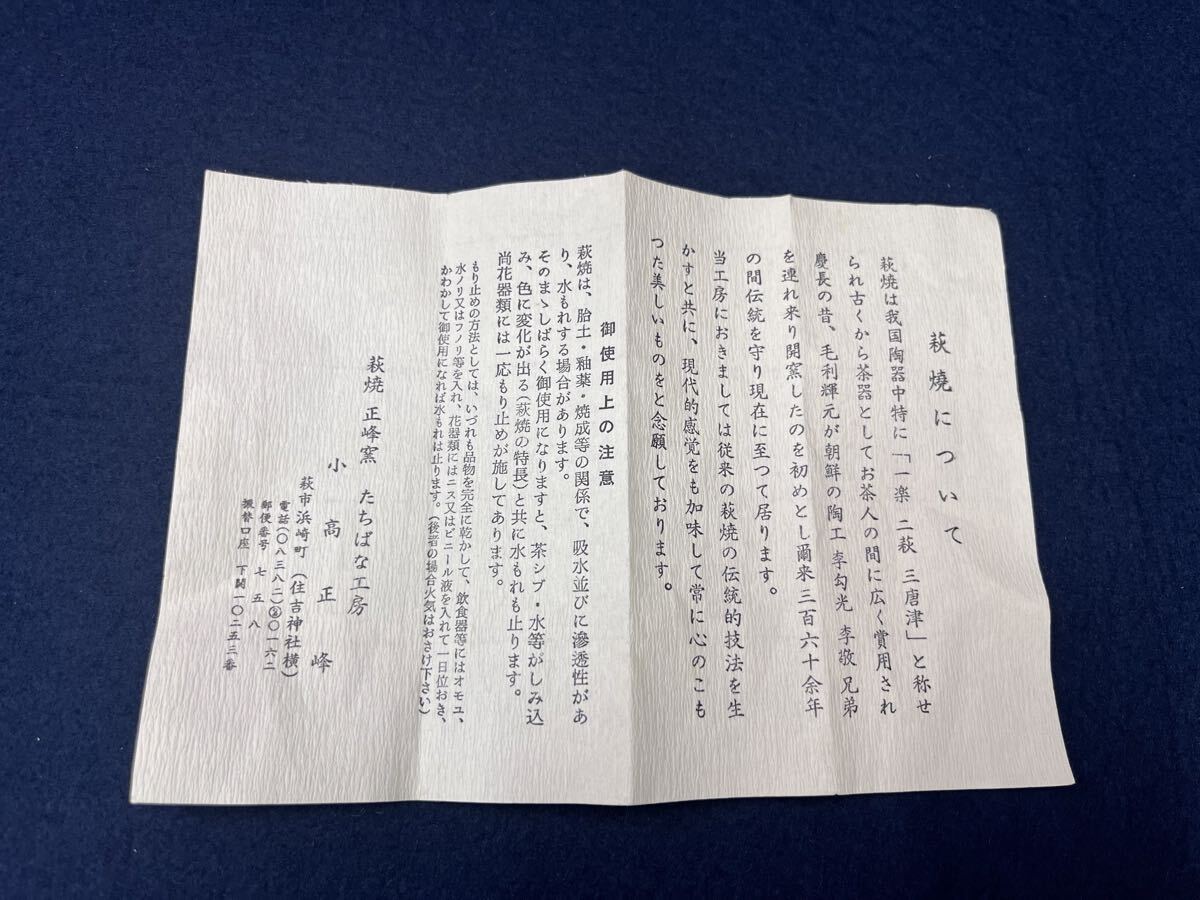 萩焼について
萩焼は我国陶器中特に「一楽 二萩 三唐津」と称せ
られ古くから茶器としてお茶人の間に広く賞用され
慶長の昔、毛利輝元が朝鮮の陶工 李勾光 李敬 兄弟
を連れ来り開窯したのを初めとし爾来三百六十余年
の間伝統を守り現在に至つて居ります。
当工房におきましては従来の萩焼の伝統的技法を生
かすと共に、現代的感覚をも加味して常に心のこも
つた美しいものをと念願しております。
御使用上の注意
萩焼は、胎土・釉薬・焼成等の関係で、吸水並びに滲透性があ
り、水もれする場合があります。
そのまゝしばらく御使用になりますと、茶シブ・水等がしみ込
み、色に変化が出る(萩焼の特長)と共に水もれも止ります。
尚花器類には一応もり止めが施してあります。
もり止めの方法としては、いづれも品物を完全に乾かして、飲食器等にはオモユ、
水ノリ又はフノリ等を入れ、花器類にはニス又はビニール液を入れて一日位おき、
かわかして御使用になれば水もれは止ります。(後者の場合火気はおさけ下さい)
萩焼 正峰窯 たちばな工房
小高正峰
萩市浜崎町(住吉神社横)
電話(〇八三八二)②〇一六二
郵便番号 七五八
振替口座 下関一〇二五三番